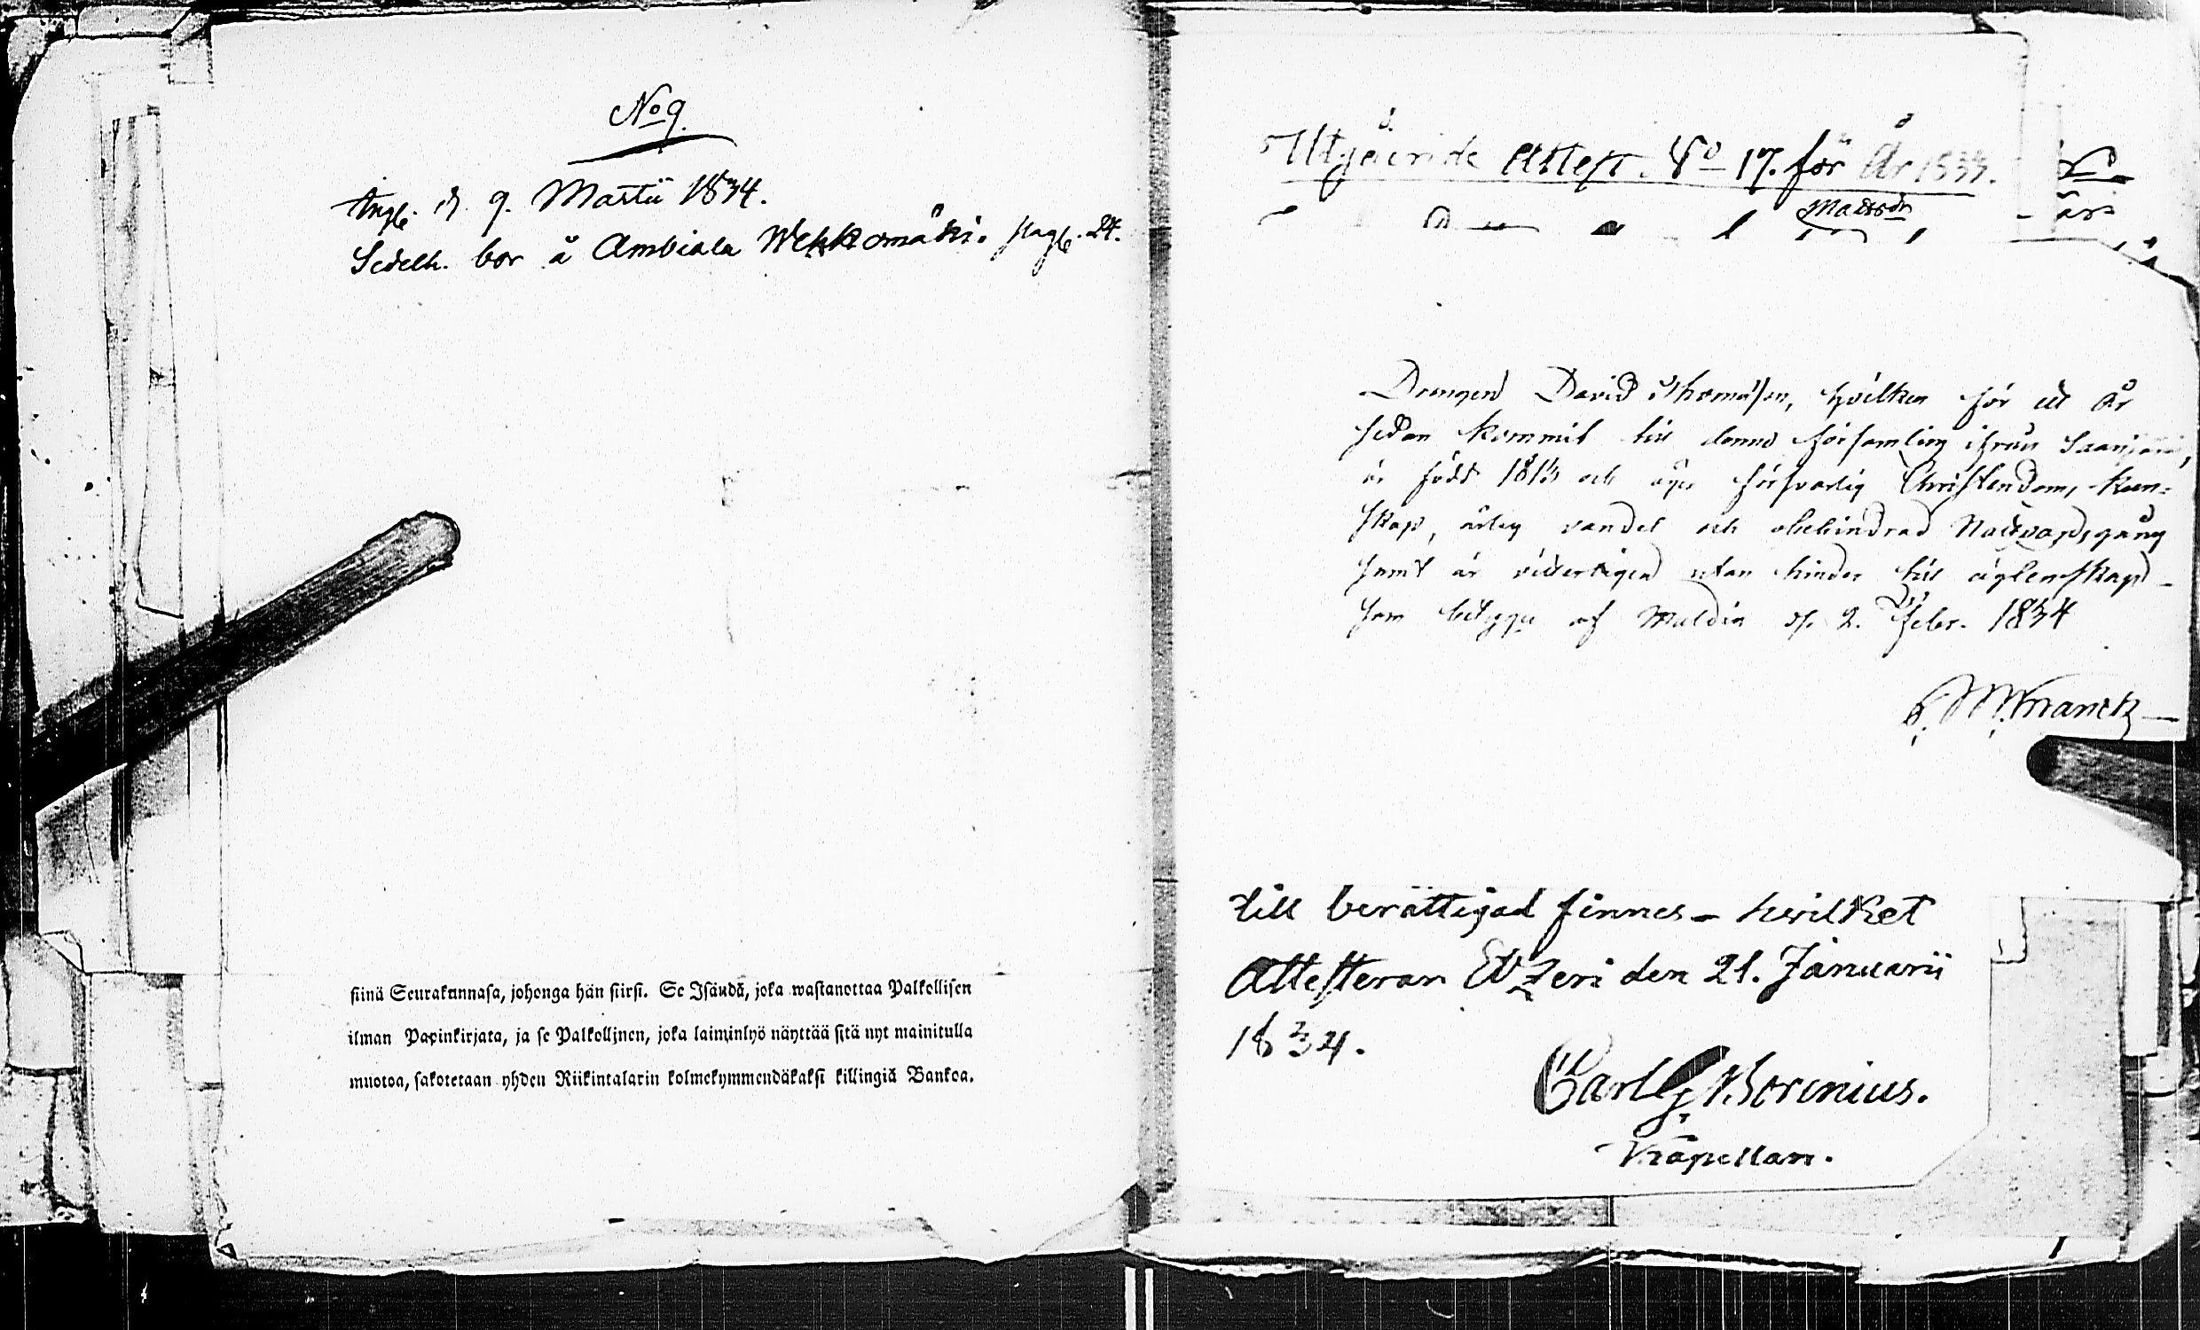 No 9.
Angb. d. 9. Martii 1834.
Sedelh. bor å Ambiala Wekkomäki. pag. 24.
siinä Seurakunnasa, johonga hän siirsi. Se Isändä, joka wastanottaa Palkollisen
ilman Papinkirjata, ja se Palkollinen, joka laiminlyö näyttää sitä nyt mainitulla
muotoa, sakotetaan yhden Riikintalarin kolmekymmendäkaksi killingiä Bankoa.
Utgående Attest. No 17. för År 1833.
Drengen David Thomasson, hvilken för ett år
sedan kommit till denna församling ifrån Saarijärvi,
är född 1813 och äger försvarlig Christendoms kun-
skap, ärlig vandel och obehindrad Nattvardsgång
samt är vitterligen utan hinder till äktenskap
som betygar af Muldia d. 2. Febr. 1834
Franck
till berättigad finnes – hvilket
Attesteras Etzeri den 21. Januarii
1834.
Carl G. Borenius.
Kapellan.